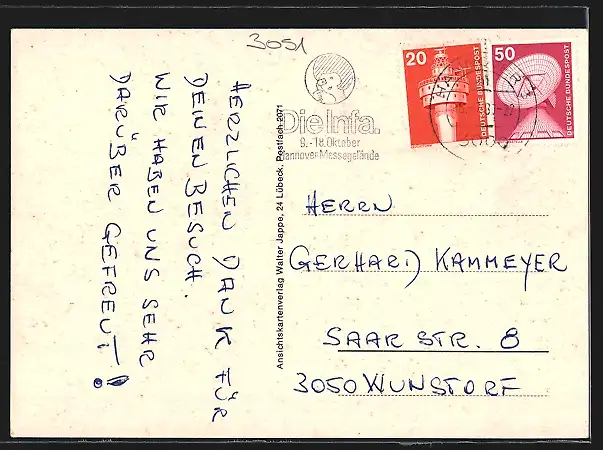 3051
20
DEUTSCHE BUNDESPOST
50
DEUTSCHE BUNDESPOST
Die Infa.
9.-18. Oktober
Hannover-Messegelände
HERZLICHEN DANK FÜR
DEINEN BESUCH.
WIR HABEN UNS SEHR
DARÜBER GEFREUT!
Ansichtskartenverlag Walter Jappe, 24 Lübeck, Postfach 2071
HERRN
GERHARD KAMMEYER
SAARSTR. 8
3050 WUNSTORF